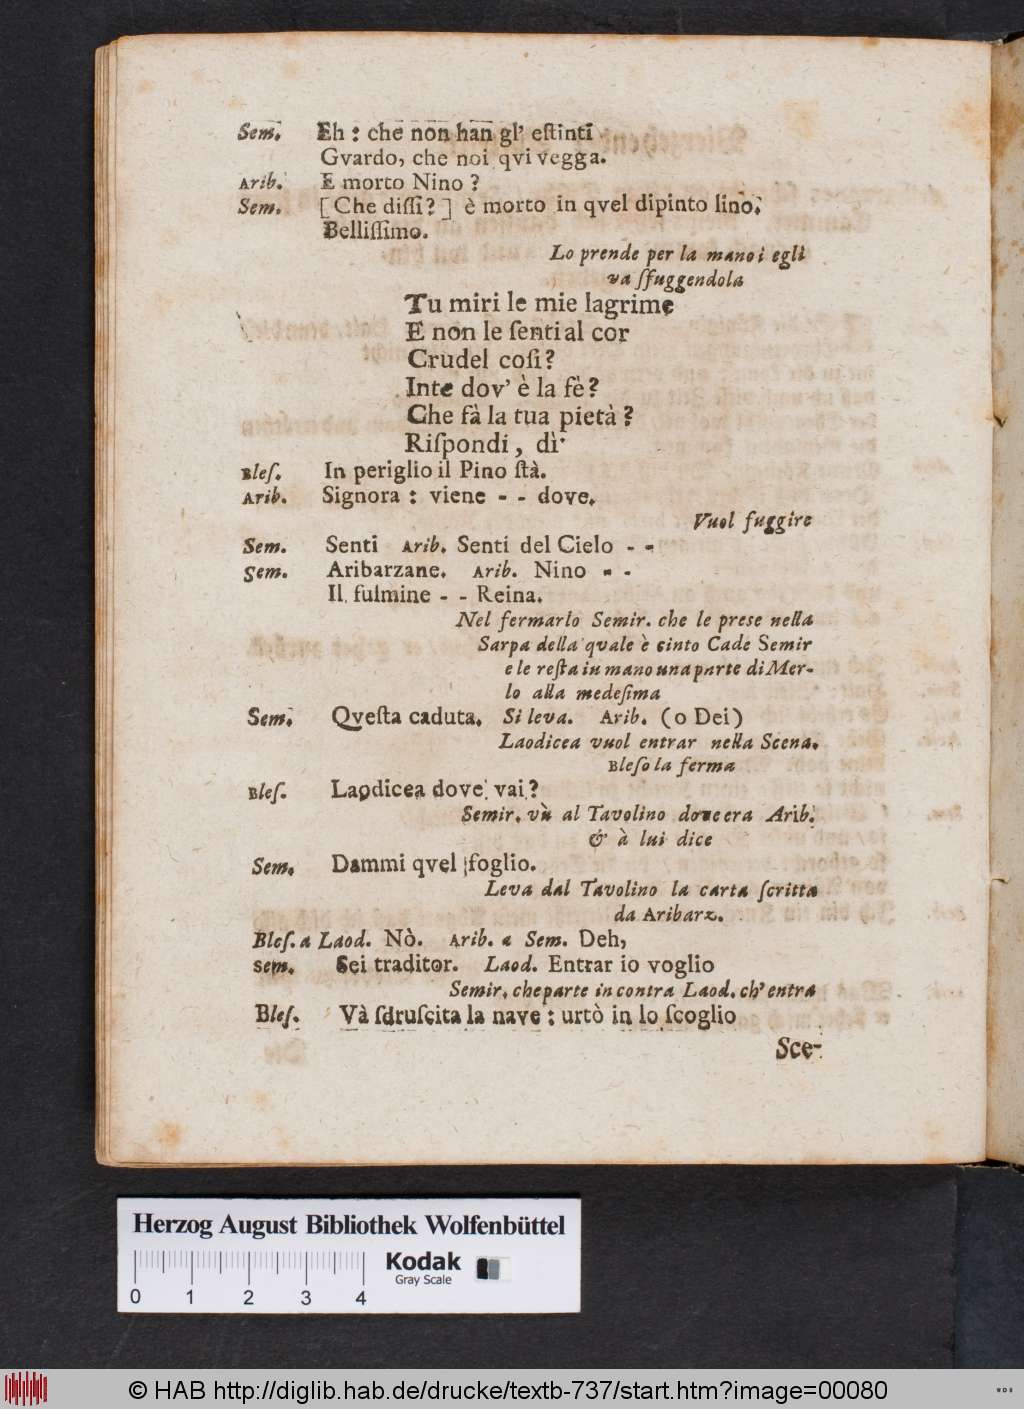 Sem. Eh : che non han gl' eſtinti
Gvardo, che noi qvi vegga.
Arib. E morto Nino ?
Sem. [ Che diſſi? ] è morto in qvel dipinto lino.
Belliſſimo.
Lo prende per la mano i egli
va ſfuggendola
Tu miri le mie lagrime
E non le ſenti al cor
Crudel coſi?
Inte dov' è la fè?
Che fà la tua pietà?
Riſpondi, dì
Bleſ. In periglio il Pino ſtà.
Arib. Signora : viene - - dove.
Vuol fuggire
Sem. Senti Arib. Senti del Cielo - -
Sem. Aribarzane. Arib. Nino - -
Il fulmine - - Reina.
Nel fermarlo Semir. che le prese nella
Sarpa della qvale è cinto Cade Semir
e le reſta iu mano una parte di Mer-
lo alla medeſima
Sem. Qveſta caduta. Si leva. Arib. (o Dei)
Laodicea vuol entrar nella Scena.
Bleſo la ferma
Bleſ. Laodicea dove vai ?
Semir. và al Tavolino dove era Arib.
& à lui dice
Sem. Dammi qvel foglio.
Leva dal Tavolino la carta ſcritta
da Aribarz.
Bleſ. a Laod. Nò. Arib. a Sem. Deh,
sem. Sei traditor. Laod. Entrar io voglio
Semir. che parte in contra Laod. ch' entra
Bleſ. Và ſdruſcita la nave : urtò in lo ſcoglio
Sce-
Herzog August Bibliothek Wolfenbüttel
Kodak
Gray Scale
0 1 2 3 4
© HAB http://diglib.hab.de/drucke/textb-737/start.htm?image=00080